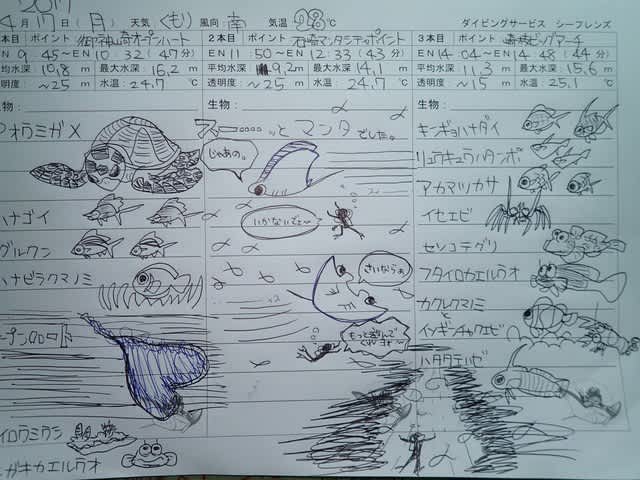 2017
4月17日(月) 天気 くもり 風向 南 気温 28℃ ダイビングサービス シーフレンズ
本目 ポイント 御神崎オープンハート
EN 9 45〜EN 10 32 (47分)
平均水深 10.8 m 最大水深 16.2 m
透明度 〜25 m 水温: 24.7 ℃
生物:
アオウミガメ
ハナゴイ
グルクン
ハナビラクマノミ
オープンハート
イロウミウシ
ガキカエルウオ
2本目 ポイント 石崎マンタシティポイント
EN 11 50〜EN 12 33 (43分)
平均水深 9.2 m 最大水深 14.1 m
透明度 〜25 m 水温: 24.7 ℃
生物:
ずーーーっとマンタでした。
じゃあの。
いかないで〜
さいならぁ
もっと遊んでくれよ〜
3本目 ポイント 崎枝ビッグアーチ
EN 14 04〜EN 14 48 (44分)
平均水深 11.3 m 最大水深 15.6 m
透明度 〜15 m 水温: 25.1 ℃
生物:
キンギョハナダイ
リュウキュウハタンポ
アカマツカサ
イセエビ
セソコテグリ
フタイロカエルウオ
カクレクマノミ
と
イソギンチャクエビ
ハタタテハゼ